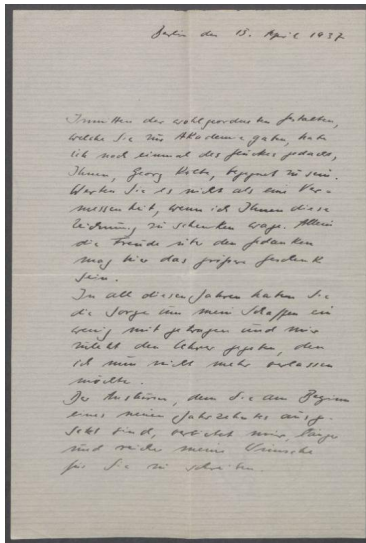 Berlin den 15. April 1937
Inmitten der wohlgeordneten Gestalten,
welche Sie zur Akademie gaben, habe
ich noch einmal des Glückes gedacht,
Ihnen, Georg Kolbe, begegnet zu sein.
Werten Sie es nicht als eine Ver-
messenheit, wenn ich Ihnen diese
Zeichnung zu schenken wage. Allein
die Freude über den Gedanken
mag hier das größere Geschenk
sein.
In all diesen Jahren haben Sie
die Sorge um mein Schaffen ein
wenig mit getragen und mir
den Lehrer gegeben, den
ich nun nicht mehr verlassen
möchte.
Der dem Sie am Beginn
eines neuen Jahrzehntes ausge-
setzt sind, mir,
und meine Wünsche
für Sie zu schreiben.